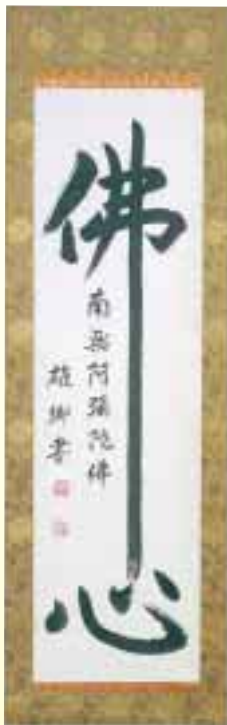 佛心
南無阿彌陀佛
雄卿書